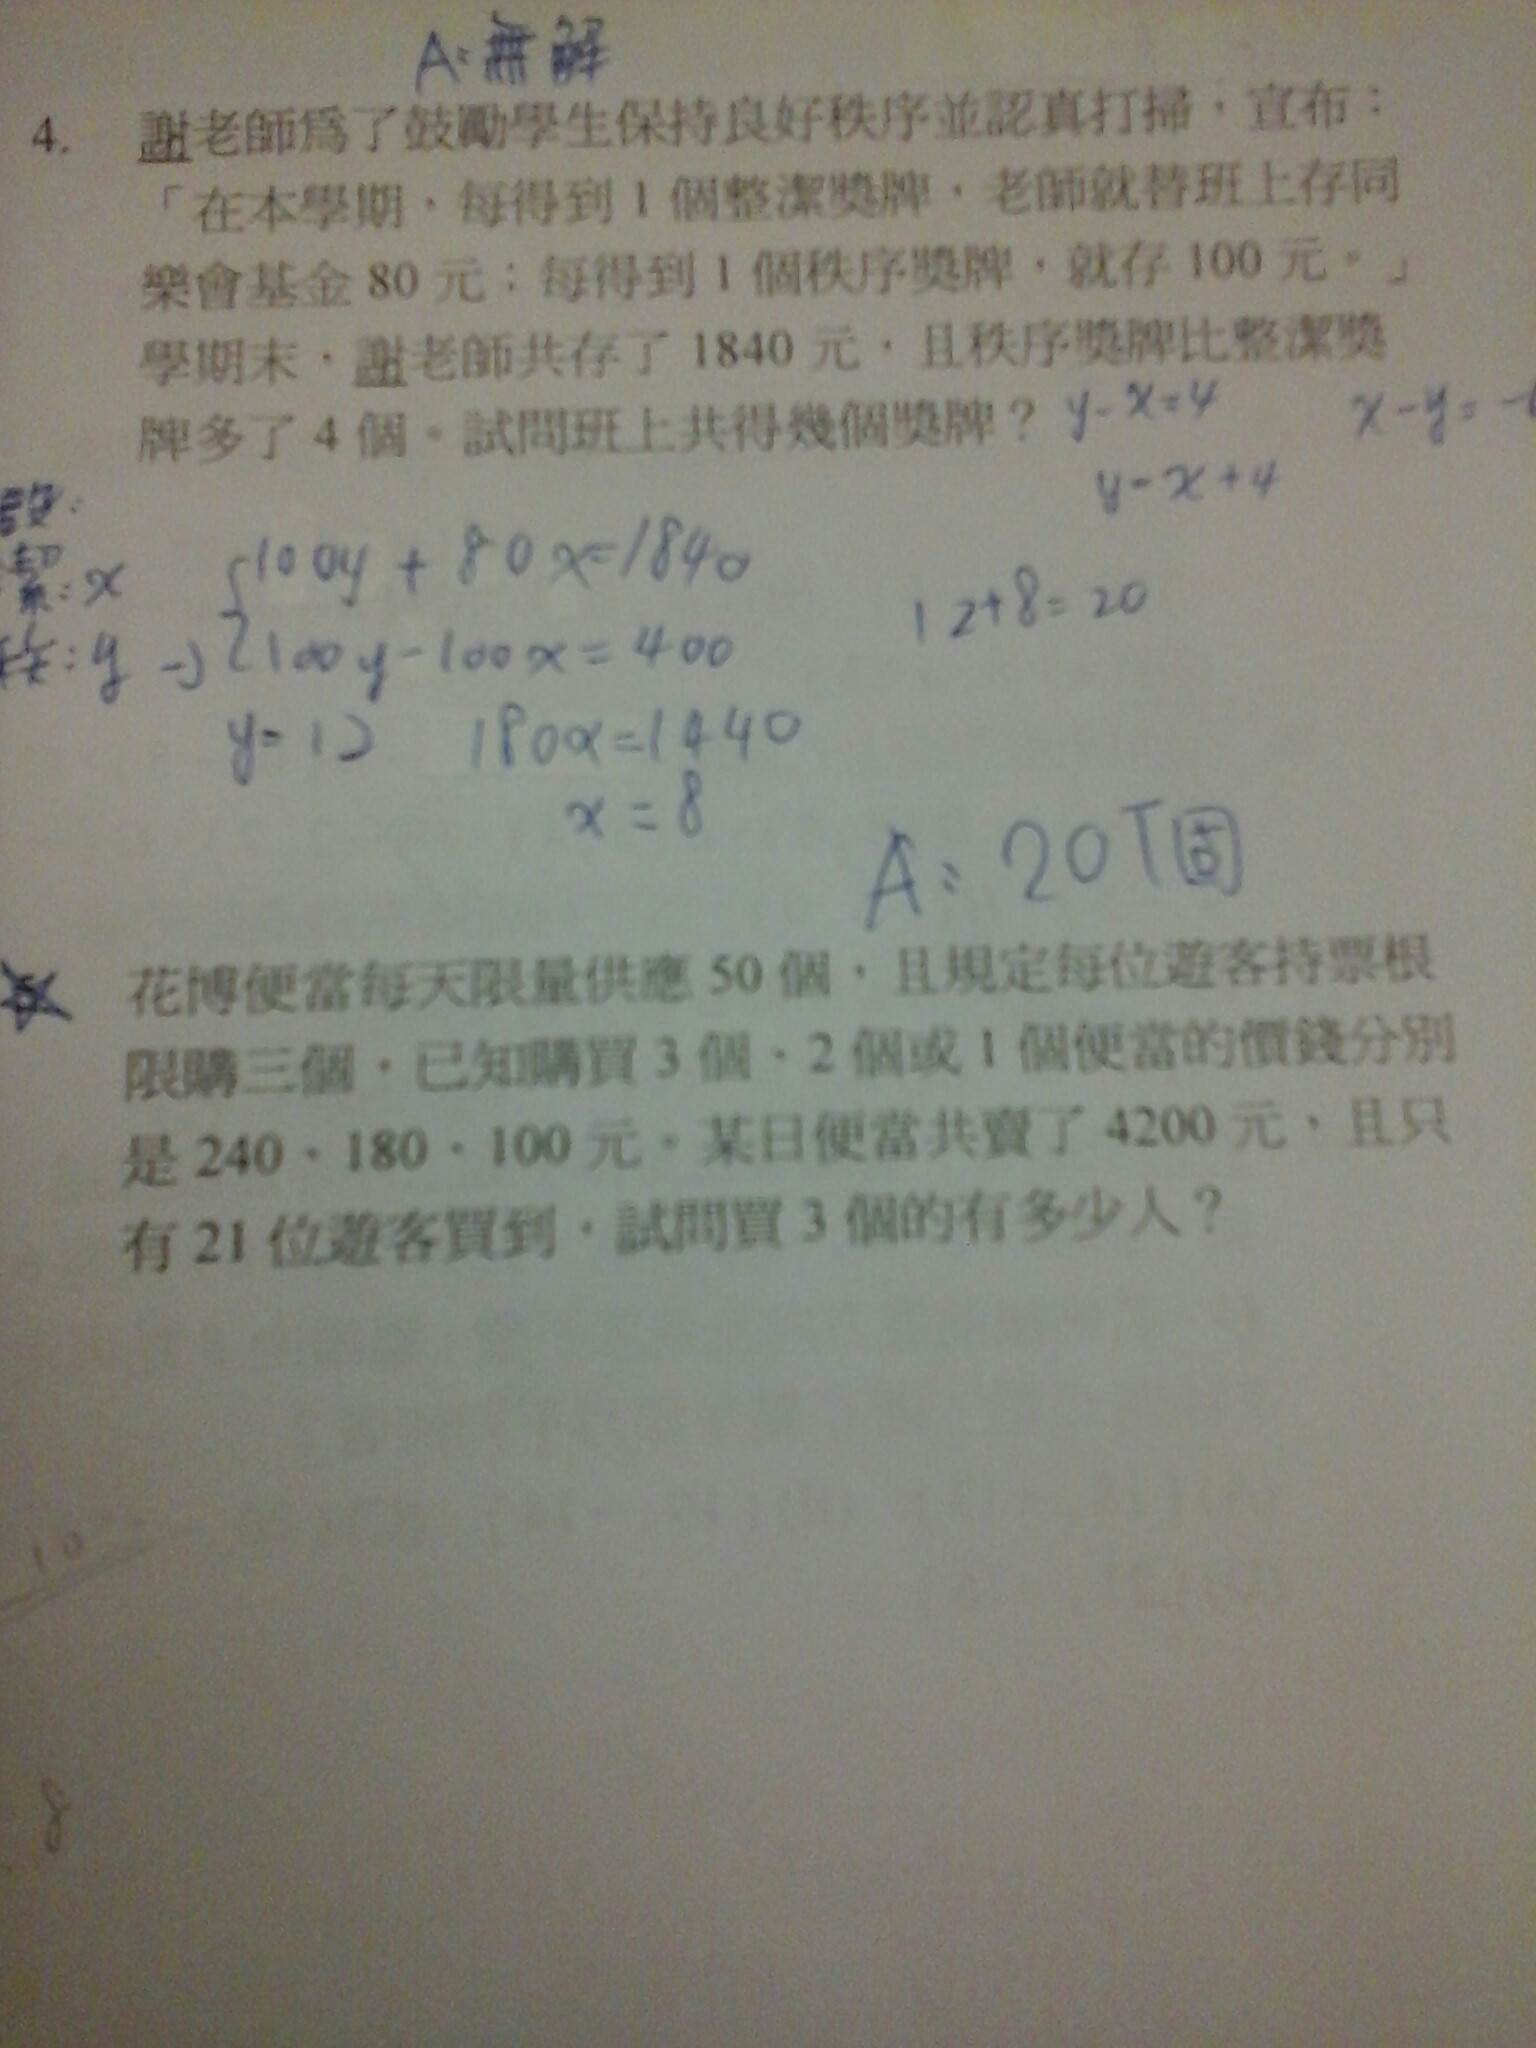 A:無解
4. 謝老師為了鼓勵學生保持良好秩序並認真打掃，宣布：
「在本學期，每得到1個整潔獎牌，老師就替班上存同
樂會基金80元；每得到1個秩序獎牌，就存100元。」
學期末，謝老師共存了1840元，且秩序獎牌比整潔獎
牌多了4個。試問班上共得幾個獎牌？
y-x=4
x-y=-
y=x+4
設:
潔:x
100y+80x=1840
12+8=20
秩:y
100y-100x=400
y=12
180x=1440
x=8
A:20個
花博便當每天限量供應50個，且規定每位遊客持票根
限購三個，已知購買3個、2個或1個便當的價錢分別
是240、180、100元。某日便當共賣了4200元，且只
有21位遊客買到，試問買3個的有多少人？
10
8